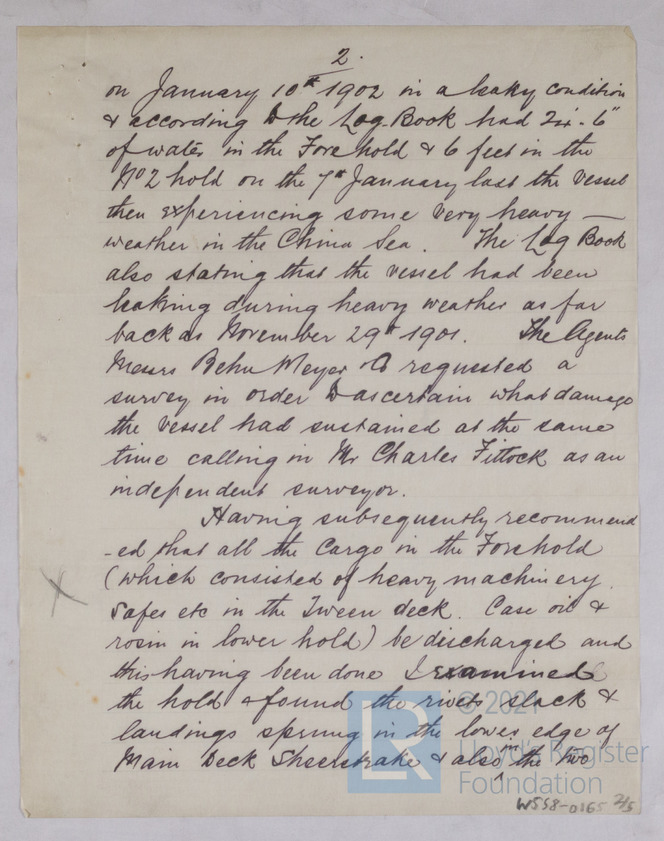 2.
on January 10th 1902 in a leaky condition
& according to the Log-Book had 2ft. 6"
of water in the Forehold & 6 feet in the
No 2 hold on the 7th January last the vessel
then experiencing some very heavy —
weather in the China Sea. The Log Book
also stating that the vessel had been
leaking during heavy weather as far
back as November 29th 1901. The Agents
Messrs Behn Meyer & Co requested a
survey in order to ascertain what damage
the vessel had sustained at the same
time calling in Mr Charles Fittock as an
independent surveyor.
Having subsequently recommend
-ed that all the Cargo in the Forehold
(which consisted of heavy machinery
Safes etc in the Tween deck. Case oil &
rosin in lower hold) be discharged and
this having been done I examined
the hold & found the rivets slack &
landings sprung in the lower edge of
Main Deck Sheerstrake & also in the two
© 2021
LR
Lloyd's Register
Foundation
W558-0165 2/5